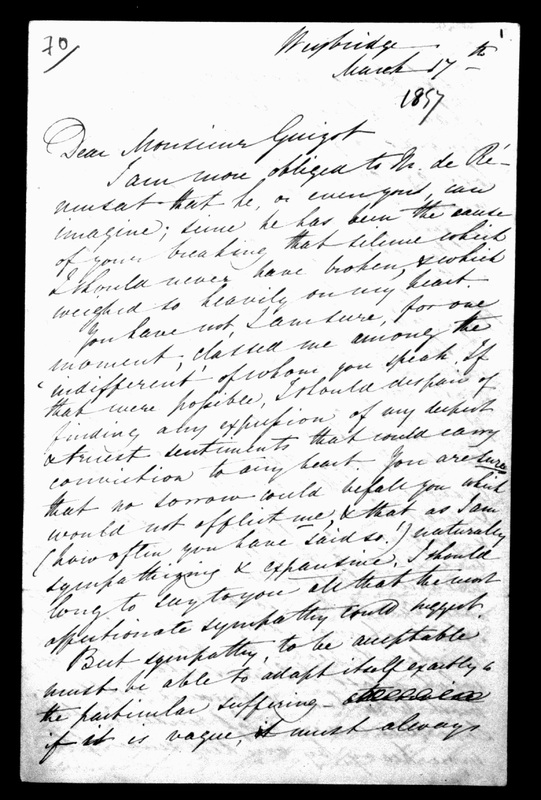 70/
Weybridge
March 17th
1857
Dear Monsieur Guizot
I am more obliged to M. de Ré-
musat that he, or even you, can
imagine; since he has been the cause
of your breaking that silence which
I should never have broken, & which
weighed so heavily on my heart.
You have not, I am sure, for one
moment, classed me among the
'indifferent' of whom you speak. If
that were possible, I should despair of
finding any expression of my deepest
& truest sentiments that could carry
conviction to any heart. You are sure
that no sorrow could befall you which
would not afflict me, & that as I am
(how often you have said so!) naturally
sympathizing & expansive, I should
long to say to you all that the most
affectionate sympathy could suggest.
But sympathy, to be acceptable
must be able to adapt itself exactly to
the particular suffering –
if it is vague, it must always